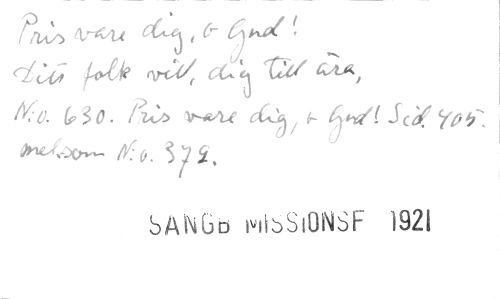 Pris vare dig, o Gud!
Ditt folk vill, dig till ära,
N:o. 630. Pris vare dig, o Gud! Sid. 405.
mel. som N:o. 379.
SANGB MISSIONSF 1921